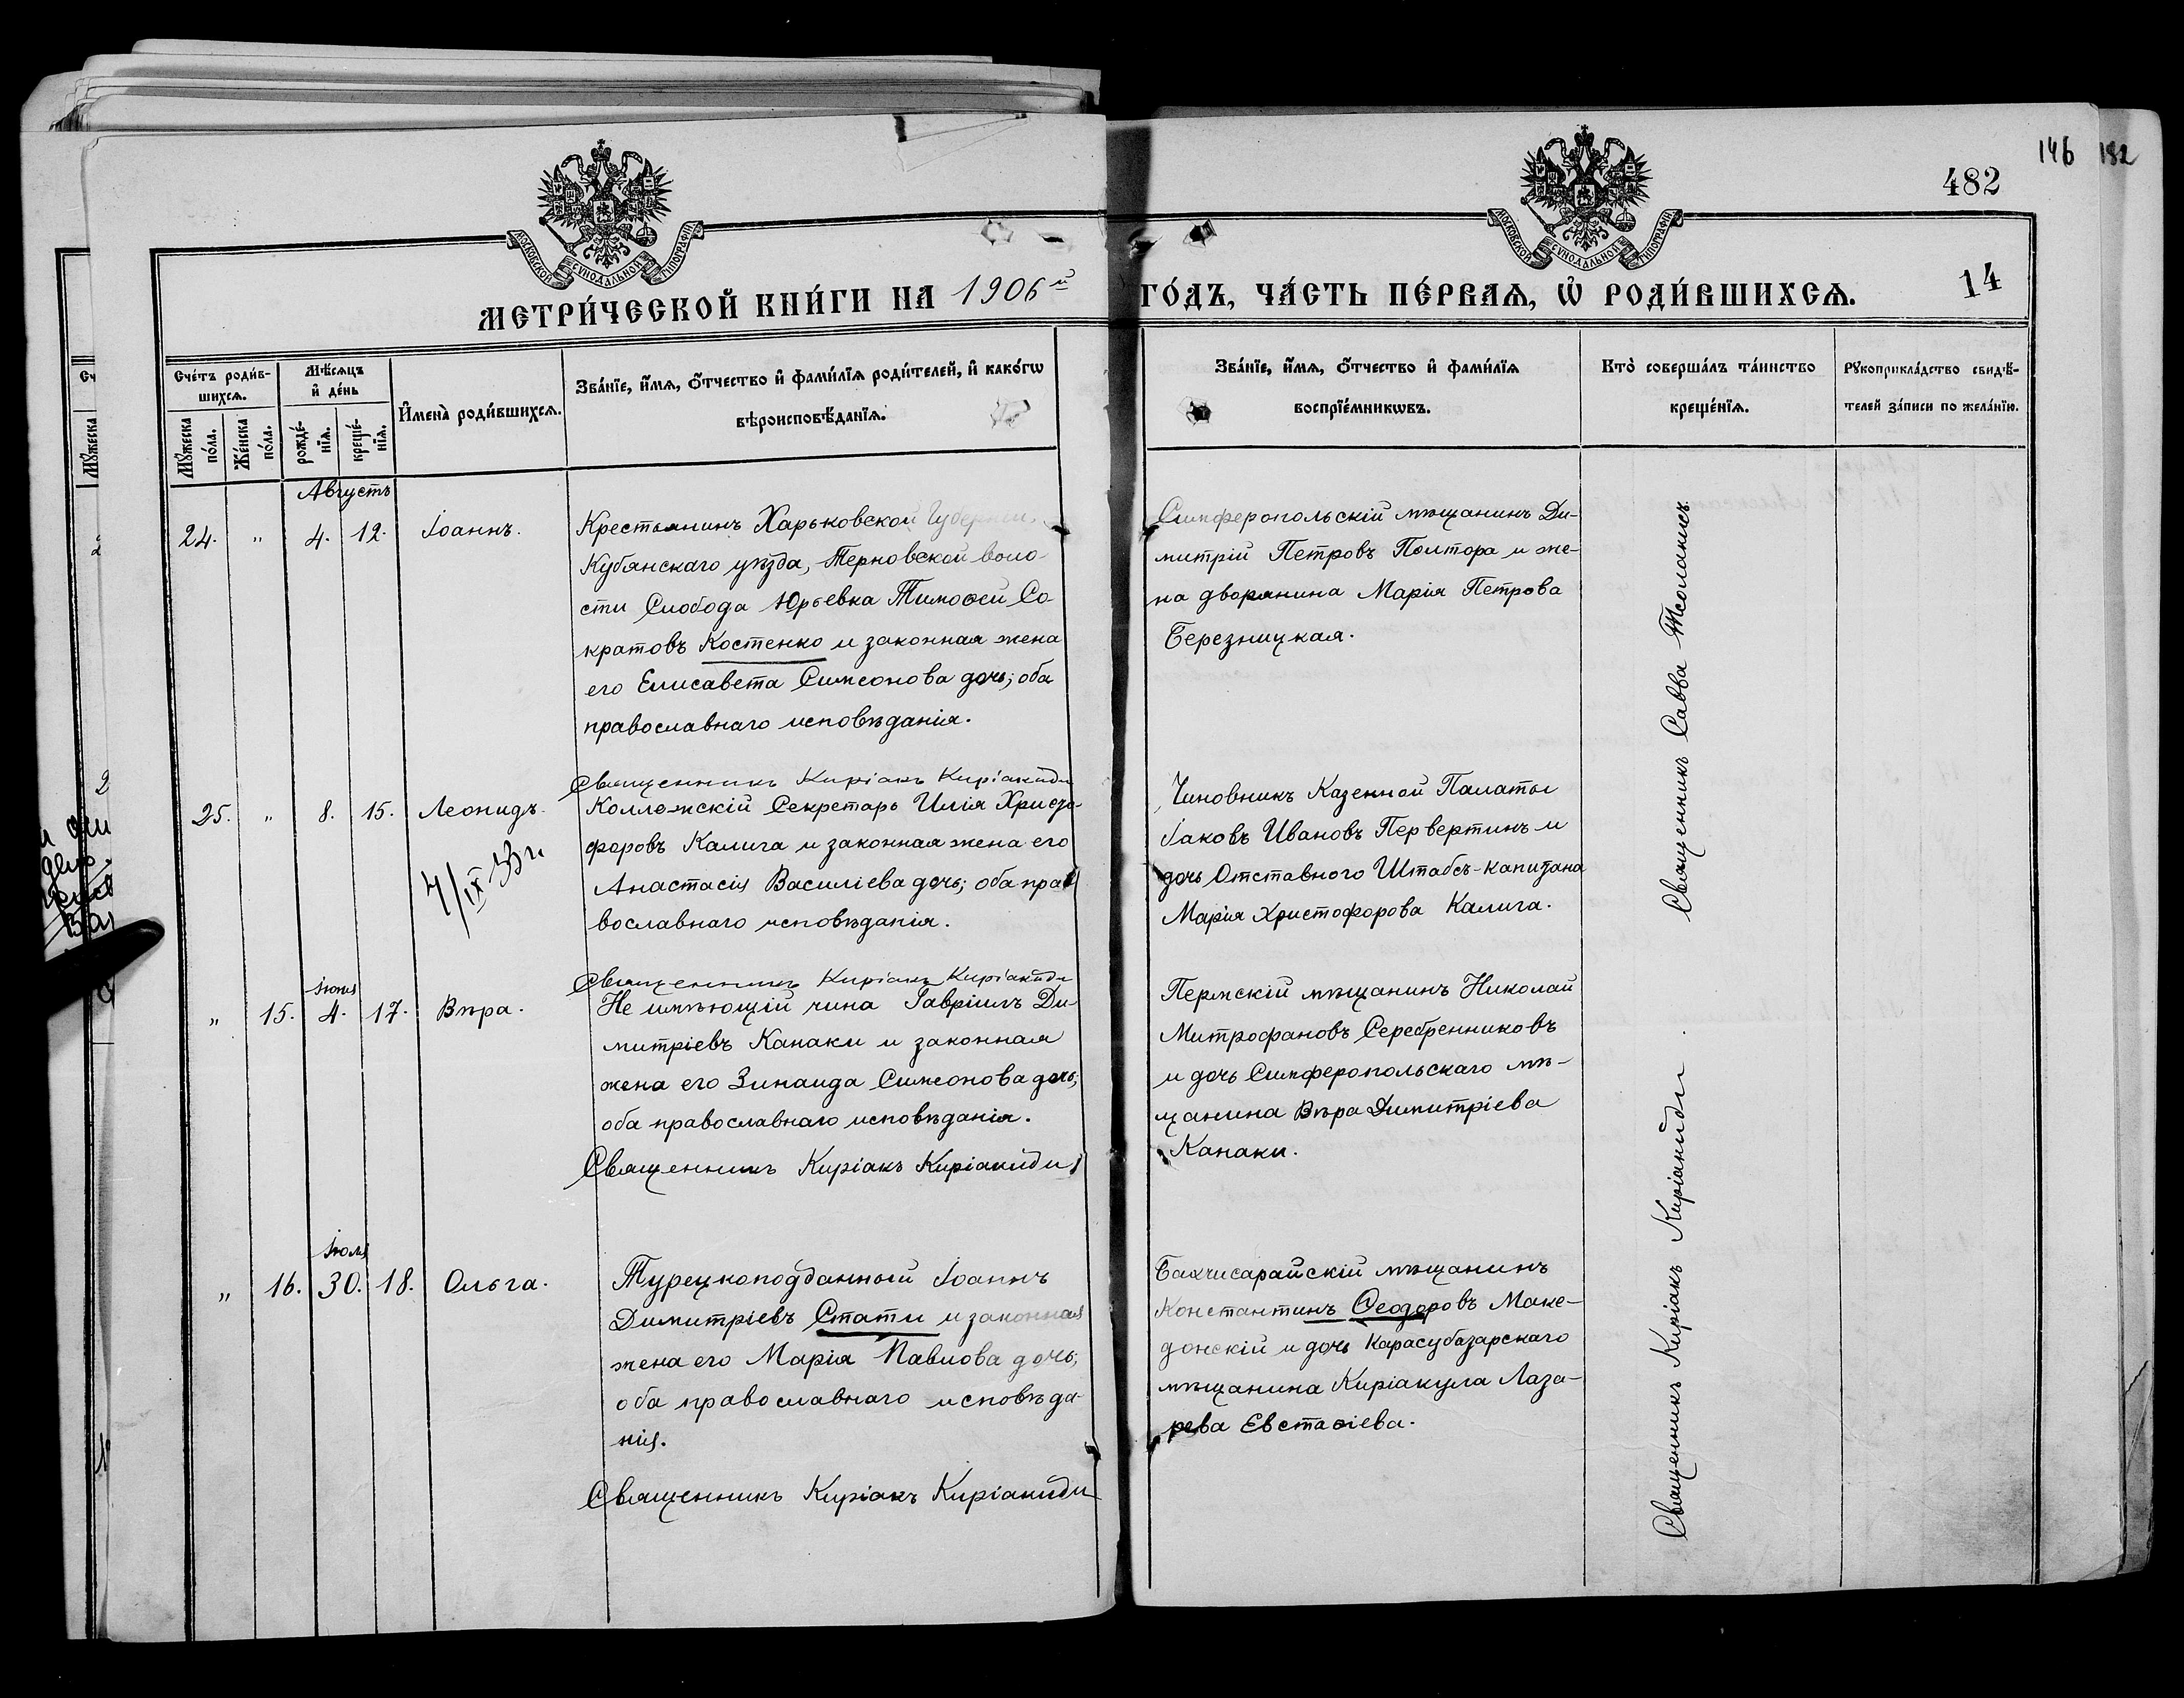 146 182
482
14
МОСКОВСКОЙ СѴНОДАЛЬНОЙ ТИПОГРАФІИ
МОСКОВСКОЙ СѴНОДАЛЬНОЙ ТИПОГРАФІИ
МЕТРИ́ЧЕСКОЙ КНИ́ГИ НА 1906й ГО́ДЪ, ЧА́СТЬ ПЕ́РВАѦ, Ѡ҆ РОДИ́ВШИХСѦ.
Сче́тъ роди́в-
шихсѧ.
Мꙋ́жеска
по́ла.
Же́нска
по́ла.
Мѣ́сѧцъ
и҆ де́нь
рожде́-
нїѧ.
креще́-
нїѧ.
И҆мена̀ роди́вшихсѧ.
Зва́нїе, и҆́мѧ, ѻ҆́тчество и҆ фами́лїѧ роди́телей, и҆ како́гѡ
вѣроисповѣ́данїѧ.
Зва́нїе, и҆́мѧ, ѻ҆́тчество и҆ фами́лїѧ
воспрїе́мникѡвъ.
Кто̀ соверша́лъ та́инство
креще́нїѧ.
Рꙋкоприкла́дство свидѣ́-
телей за́писи по жела́нїю.
Августъ
24. " 4. 12. Іоаннъ.
Крестьянинъ Харьковской Губерніи,
Кубянскаго уѣзда, Терновской воло-
сти Слобода Юрьевка Тимоѳей Со-
кратовъ Костенко и законная жена
его Елисавета Симеонова дочь; оба
православнаго исповѣданія.
Священникъ Киріакъ Киріакиди
Симферопольскій мѣщанинъ Ди-
митрій Петровъ Полтора и же-
на дворянина Марія Петрова
Березницкая.
Священникъ Савва
25. " 8. 15. Леонидъ.
4/IX 33 г.
Коллежскій Секретарь Илія Христо-
форовъ Калига и законная жена его
Анастасія Василіева дочь; оба пра-
вославнаго исповѣданія.
Священникъ Киріакъ Киріакиди
Чиновникъ Казенной Палаты
Іаковъ Ивановъ Первертинъ и
дочь Отставного Штабсъ-капитана
Марія Христофорова Калига.
Іюня
" 15. 4. 17. Вѣра.
Не имѣющій чина Гавріилъ Ди-
митріевъ Канаки и законная
жена его Зинаида Симеонова дочь;
оба православнаго исповѣданія.
Священникъ Киріакъ Киріакиди
Пермскій мѣщанинъ Николай
Митрофановъ Серебренниковъ
и дочь Симферопольскаго мѣ-
щанина Вѣра Димитріева
Канаки.
Священникъ Киріакъ Киріакиди.
Іюля
" 16. 30. 18. Ольга.
Турецкоподданный Іоаннъ
Димитріевъ Стати и законная
жена его Марія Павлова дочь;
оба православнаго исповѣда-
нія.
Священникъ Киріакъ Киріакиди
Бахчисарайскій мѣщанинъ
Константинъ Ѳеодоровъ Маке-
донскій и дочь Карасубазарскаго
мѣщанина Киріакула Лаза-
рева Евстаѳіева.